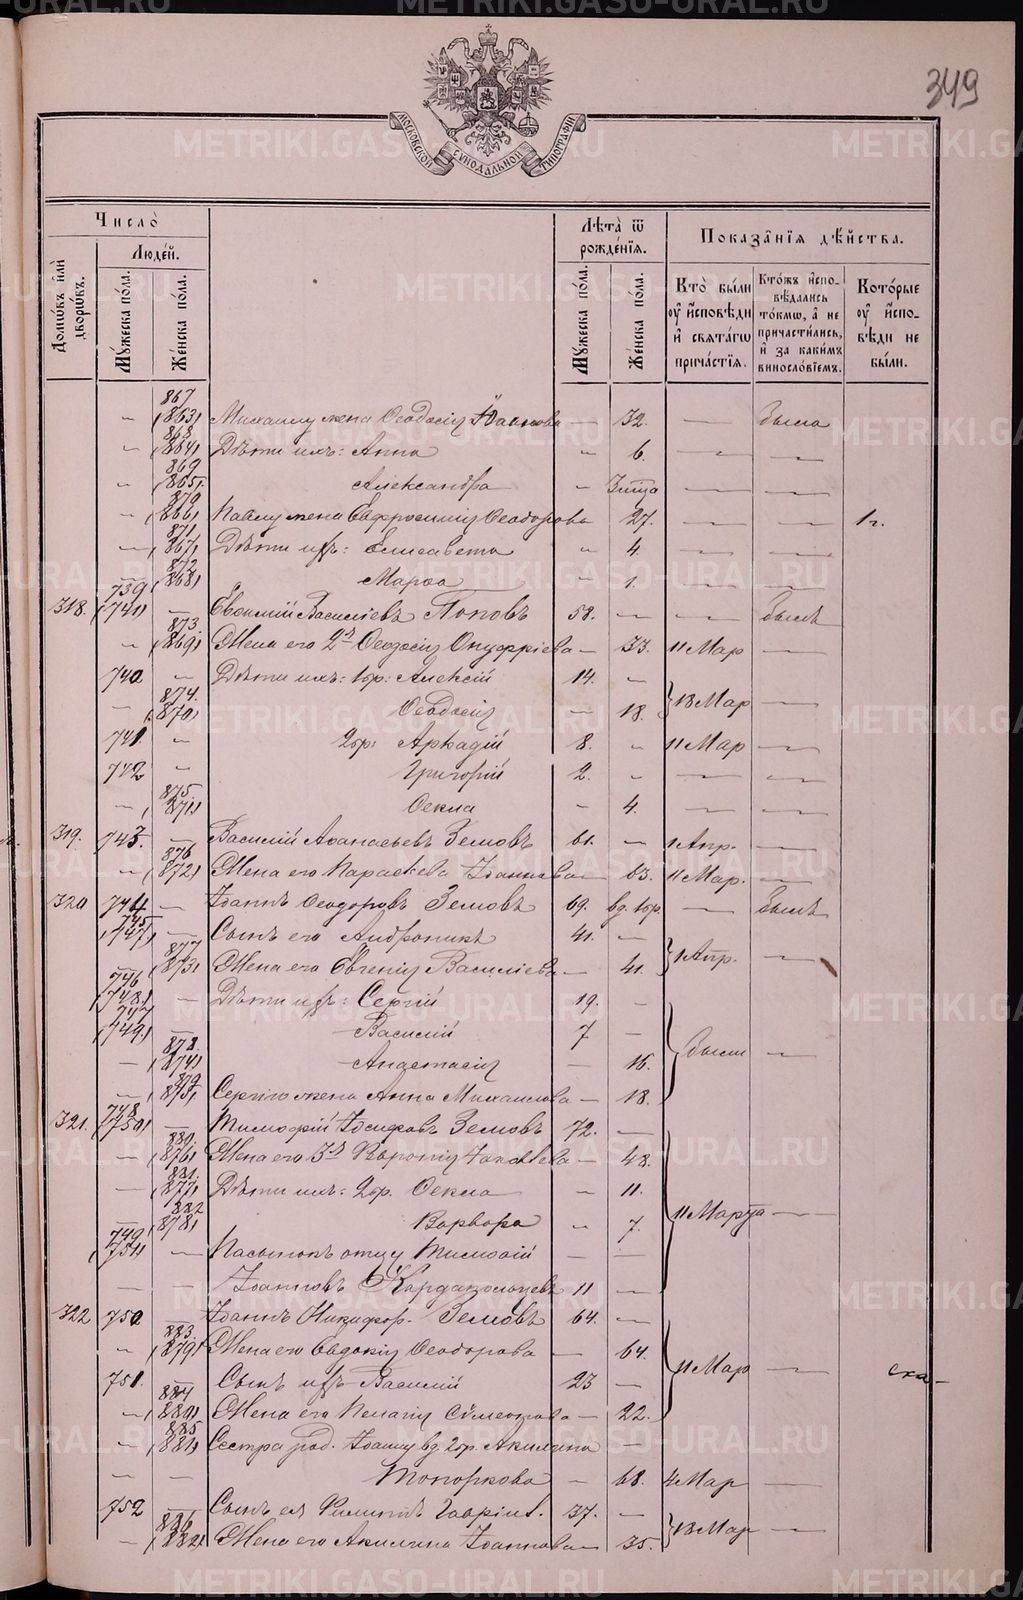 349
МОСКОВСКОЙ СУНОДАЛЬНОЙ ТИПОГРАФІИ
Число̀
Домѡ́въ и҆лѝ дворѡ́въ.
Люде́й.
Мꙋ́жеска по́ла.
Же́нска по́ла.
Лѣ́та ѿ рожде́нїѧ.
Мꙋ́жеска по́ла.
Же́нска по́ла.
Показа̑нїѧ дѣ́йства.
Кто̀ бы́ли ᲂу҆ и҆́сповѣди и҆ свѧта́гѡ прича́стїѧ.
Кто́жъ и҆спо­вѣ́дались то́кмѡ, а҆ не причасти́лись, и҆ за каки́мъ виносло́вїемъ.
Кото́рые ᲂу҆ и҆́спо­вѣди не бы́ли.
867
(863) Михаилу жена Ѳеодосія Іоаннова — 32. — была
868
(864) Дѣти ихъ: Анна 6. — —
869
(865) Александра 3 мѣ — —
870
(866) Павлу жена Евфросинія Ѳеодорова 27. — — 1 г.
871
(867) Дѣти ихъ: Елисавета 4. — —
872
(868) Марѳа 1. — —
739
318. (741) — Евѳимій Василіевъ Поповъ 58. — — былъ
873
(869) Жена его 2я Ѳеодосія Онуфріева — 33. 11 Мар —
740 Дѣти ихъ: 1бр: Алексій 14. —
874.
(870) Ѳеодосія — 18. } 13 Мар —
741. 2бр: Аркадій 8. 11 Мар —
742 Григорій 2. — —
875
(871) Ѳекла 4. — —
319. 743. — Василій Аѳанасьевъ Земовъ 61. — 1 Апр. —
876
(872) Жена его Параскева Іоаннова — 63. 11 Мар. —
320 744 — Іоаннъ Ѳеодоровъ Земовъ 69. вд. 1бр — былъ
745
(747) — Сынъ его Андроникъ 41. —
877
(873) Жена его Евгенія Василіева — 41. } 1 Апр. —
746
(748) — Дѣти ихъ: Сергій 19. —
747
(749) Василій 7 —
878.
(874) Анастасія — 16. } были —
879
(875) Сергію жена Анна Михаилова — 18.
748
321. (750) — Тимоѳій Іосифовъ Земовъ 72. —
880.
(876) Жена его 3я — 48.
881.
(877) Дѣти ихъ: 2бр. Ѳекла 11.
882
(878) Варвара 7. } 11 Марта —
749
(751) — Пасынокъ отцу Тимоѳій — —
— Іоанновъ 11 —
322 750. Іоаннъ Никифор. Земовъ 64. —
883.
(879) Жена его Евдокія Ѳеодорова — 64.
751. Сынъ ихъ Василій 23 — } 11 Мар —
884
(880) Жена его Пелагія Сѵмеонова — 22.
885
(881) Сестра род. Іоанну вд. 2бр. Акилина —
— — Топоркова — 68. 4 Мар —
752 — Сынъ ея Филиппъ Гавріил. 37. —
886
(882) Жена его Акилина Іоаннова — 35. } 13 Мар —
METRIKI.GASO-URAL.RU